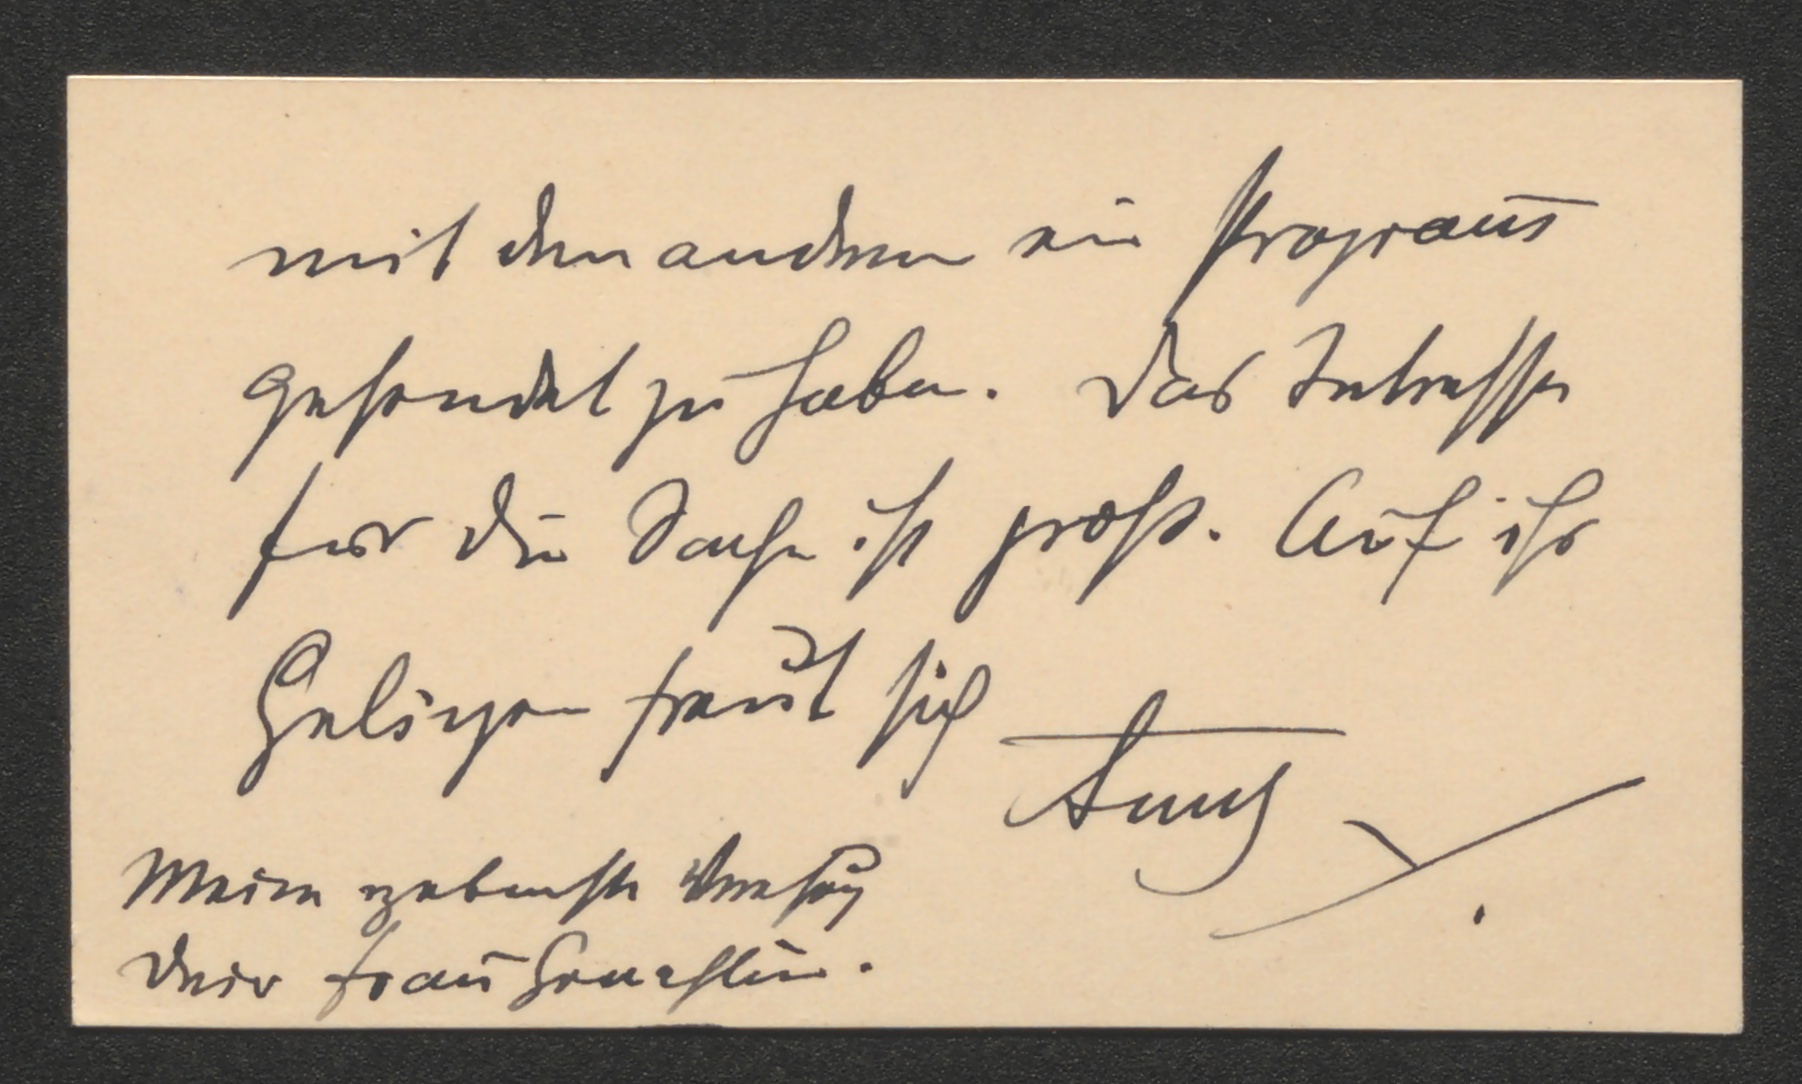 mit den andern ein Programm
gesendet zu haben. Das Interesse
für die Sache ist groß. Auf ihr
Gelingen freut sich
Meine ergebenste Verehrung
Deiner Frau Gemahlin.